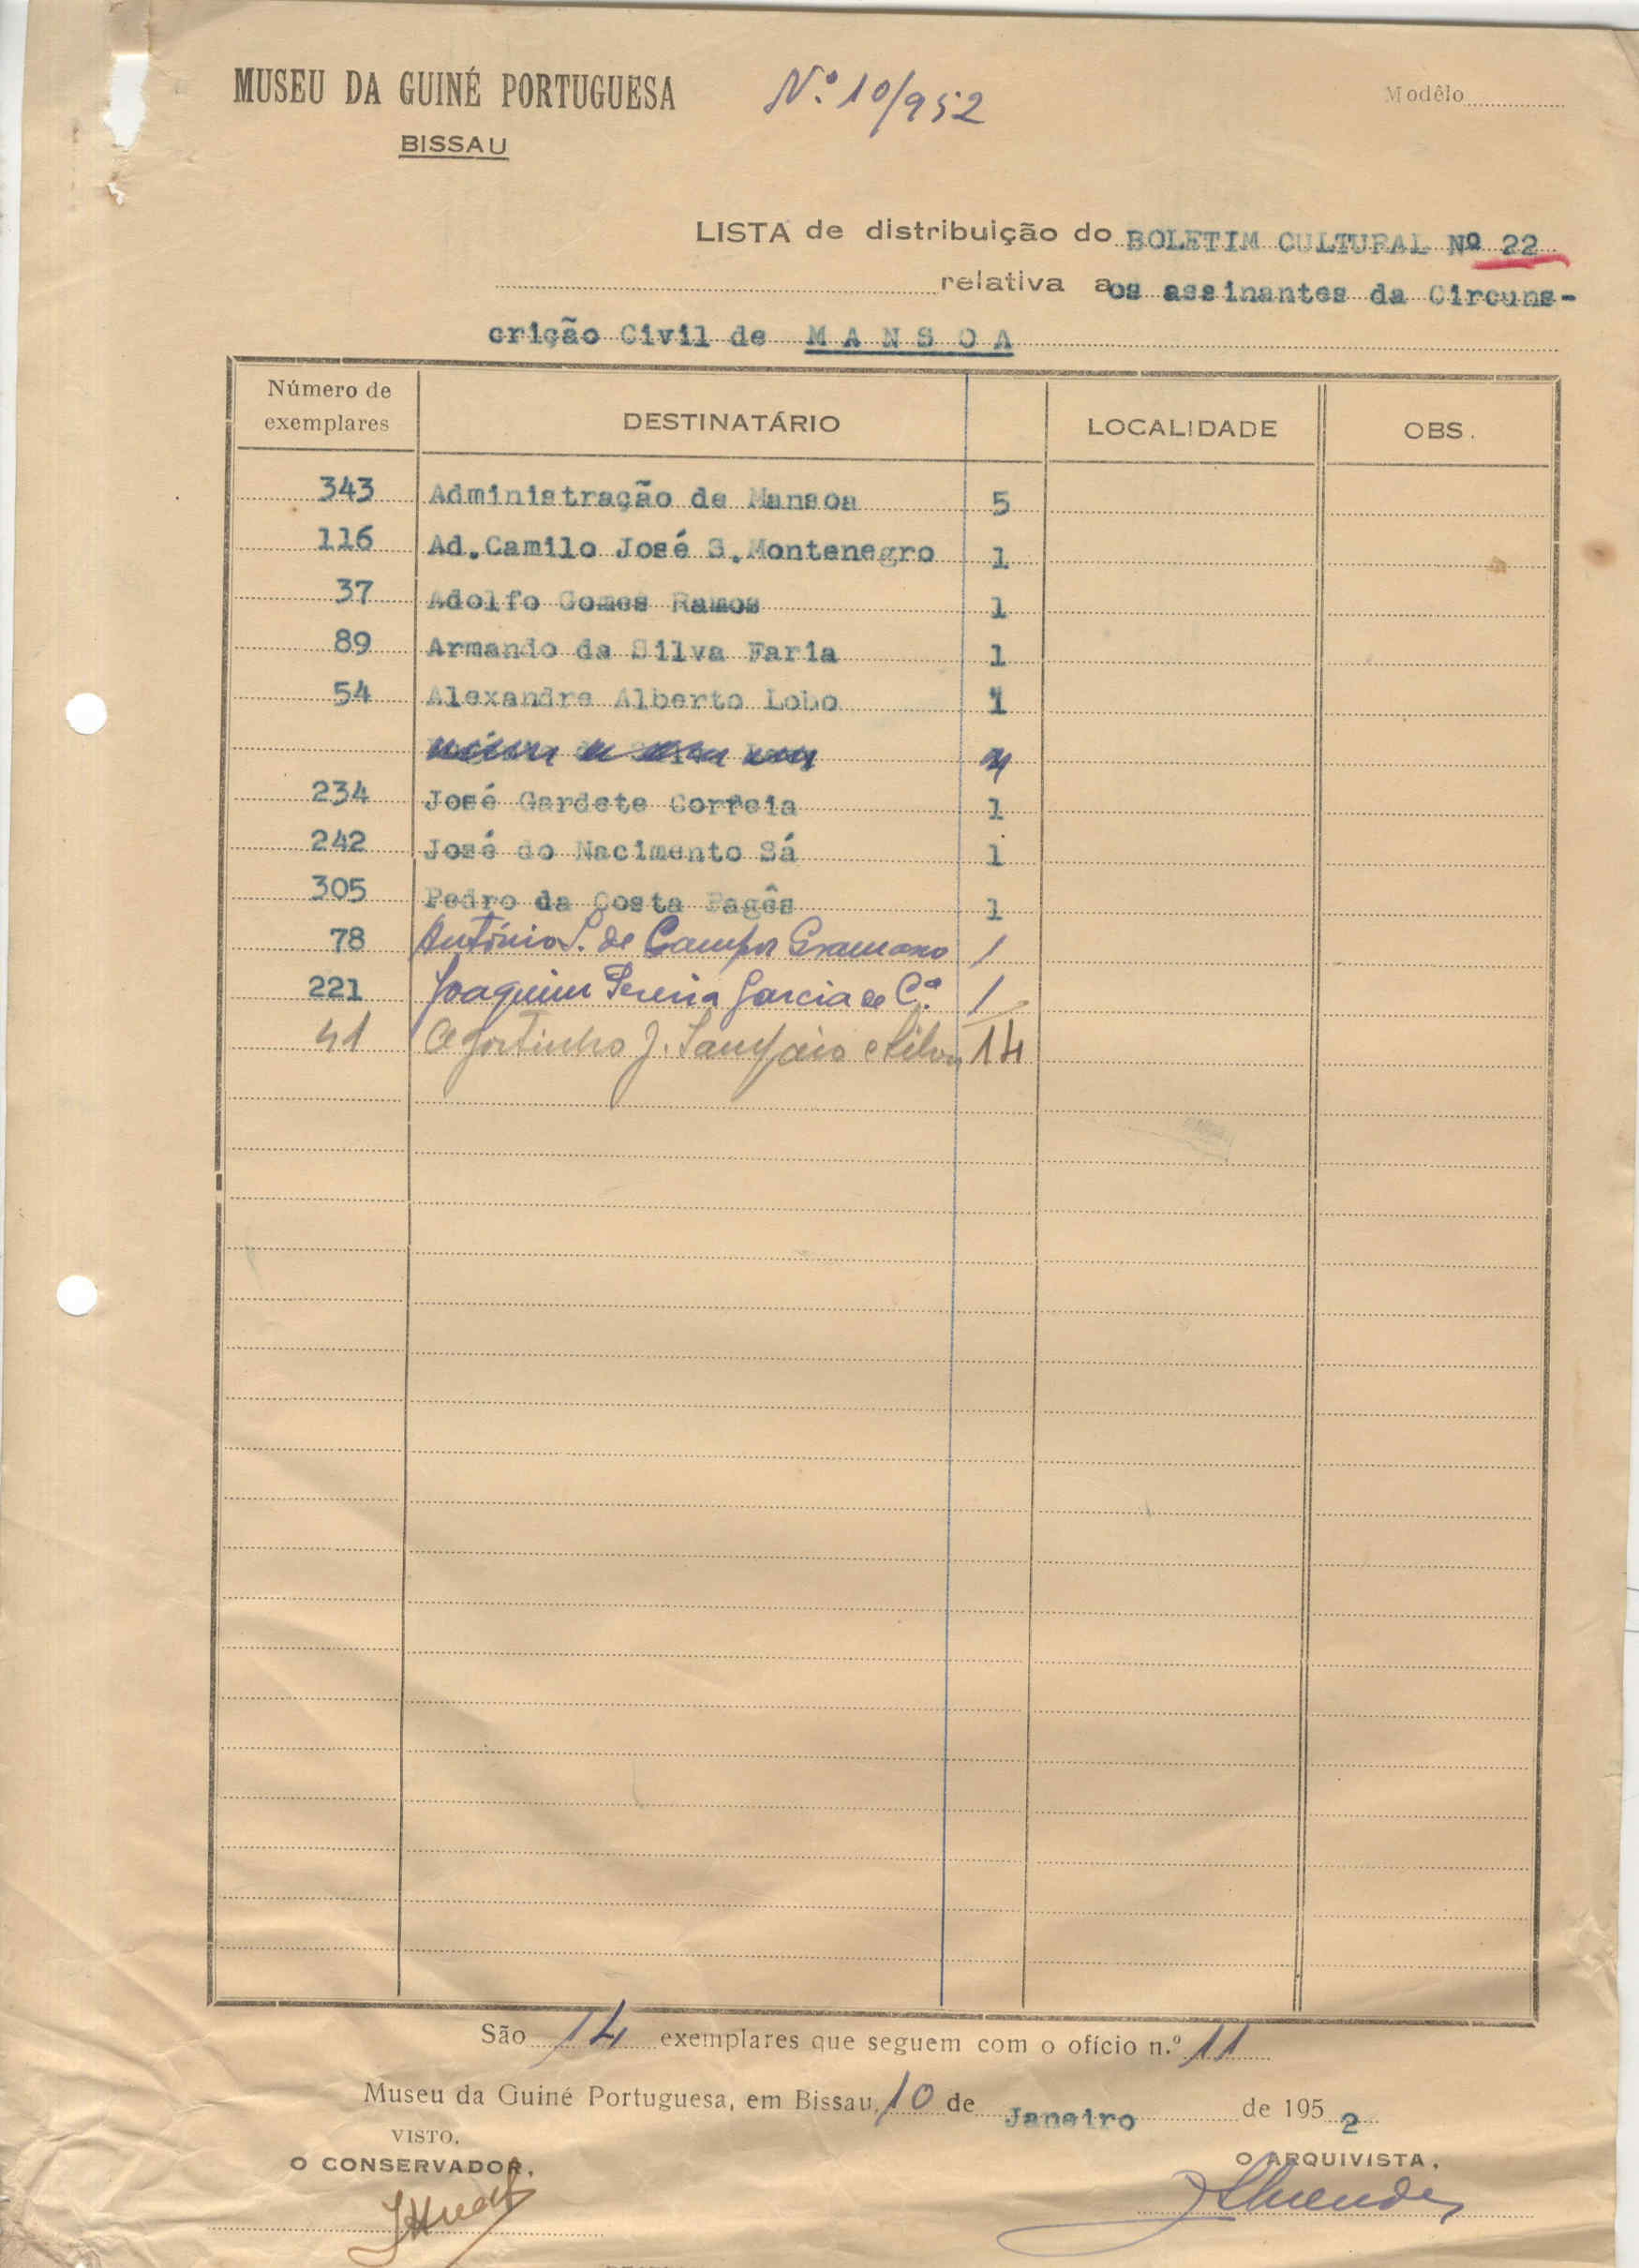 MUSEU DA GUINÉ PORTUGUESA
BISSAU
N.º 10/952
Modêlo
LISTA de distribuição do BOLETIM CULTURAL Nº 22
relativa aos assinantes da Circuns-
crição Civil de MANSOA
Número de exemplares DESTINATÁRIO LOCALIDADE OBS.
343 Administração de Mansoa 5
116 Ad.Camilo José S.Montenegro 1
37 Adolfo Gomes Ramos 1
89 Armando da Silva Faria 1
54 Alexandre Alberto Lobo 1
234 José Gardete Correia 1
242 José do Nacimento Sá 1
305 Pedro da Costa Pagês 1
78 António S. de Campos Gramaxo 1
221 Joaquim Pereira Garcia de C.ª 1
41 Agostinho J. Sampaio e Silva 14
São 14 exemplares que seguem com o ofício n.º 11
Museu da Guiné Portuguesa, em Bissau, 10 de Janeiro de 1952
VISTO,
O CONSERVADOR,
O ARQUIVISTA,